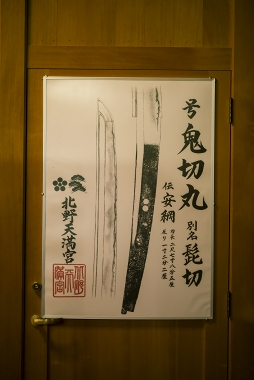 号 鬼切丸
別名 髭切
伝 安綱
刃長 二尺七寸八分五厘
反り 一寸二分二厘
北野天満宮